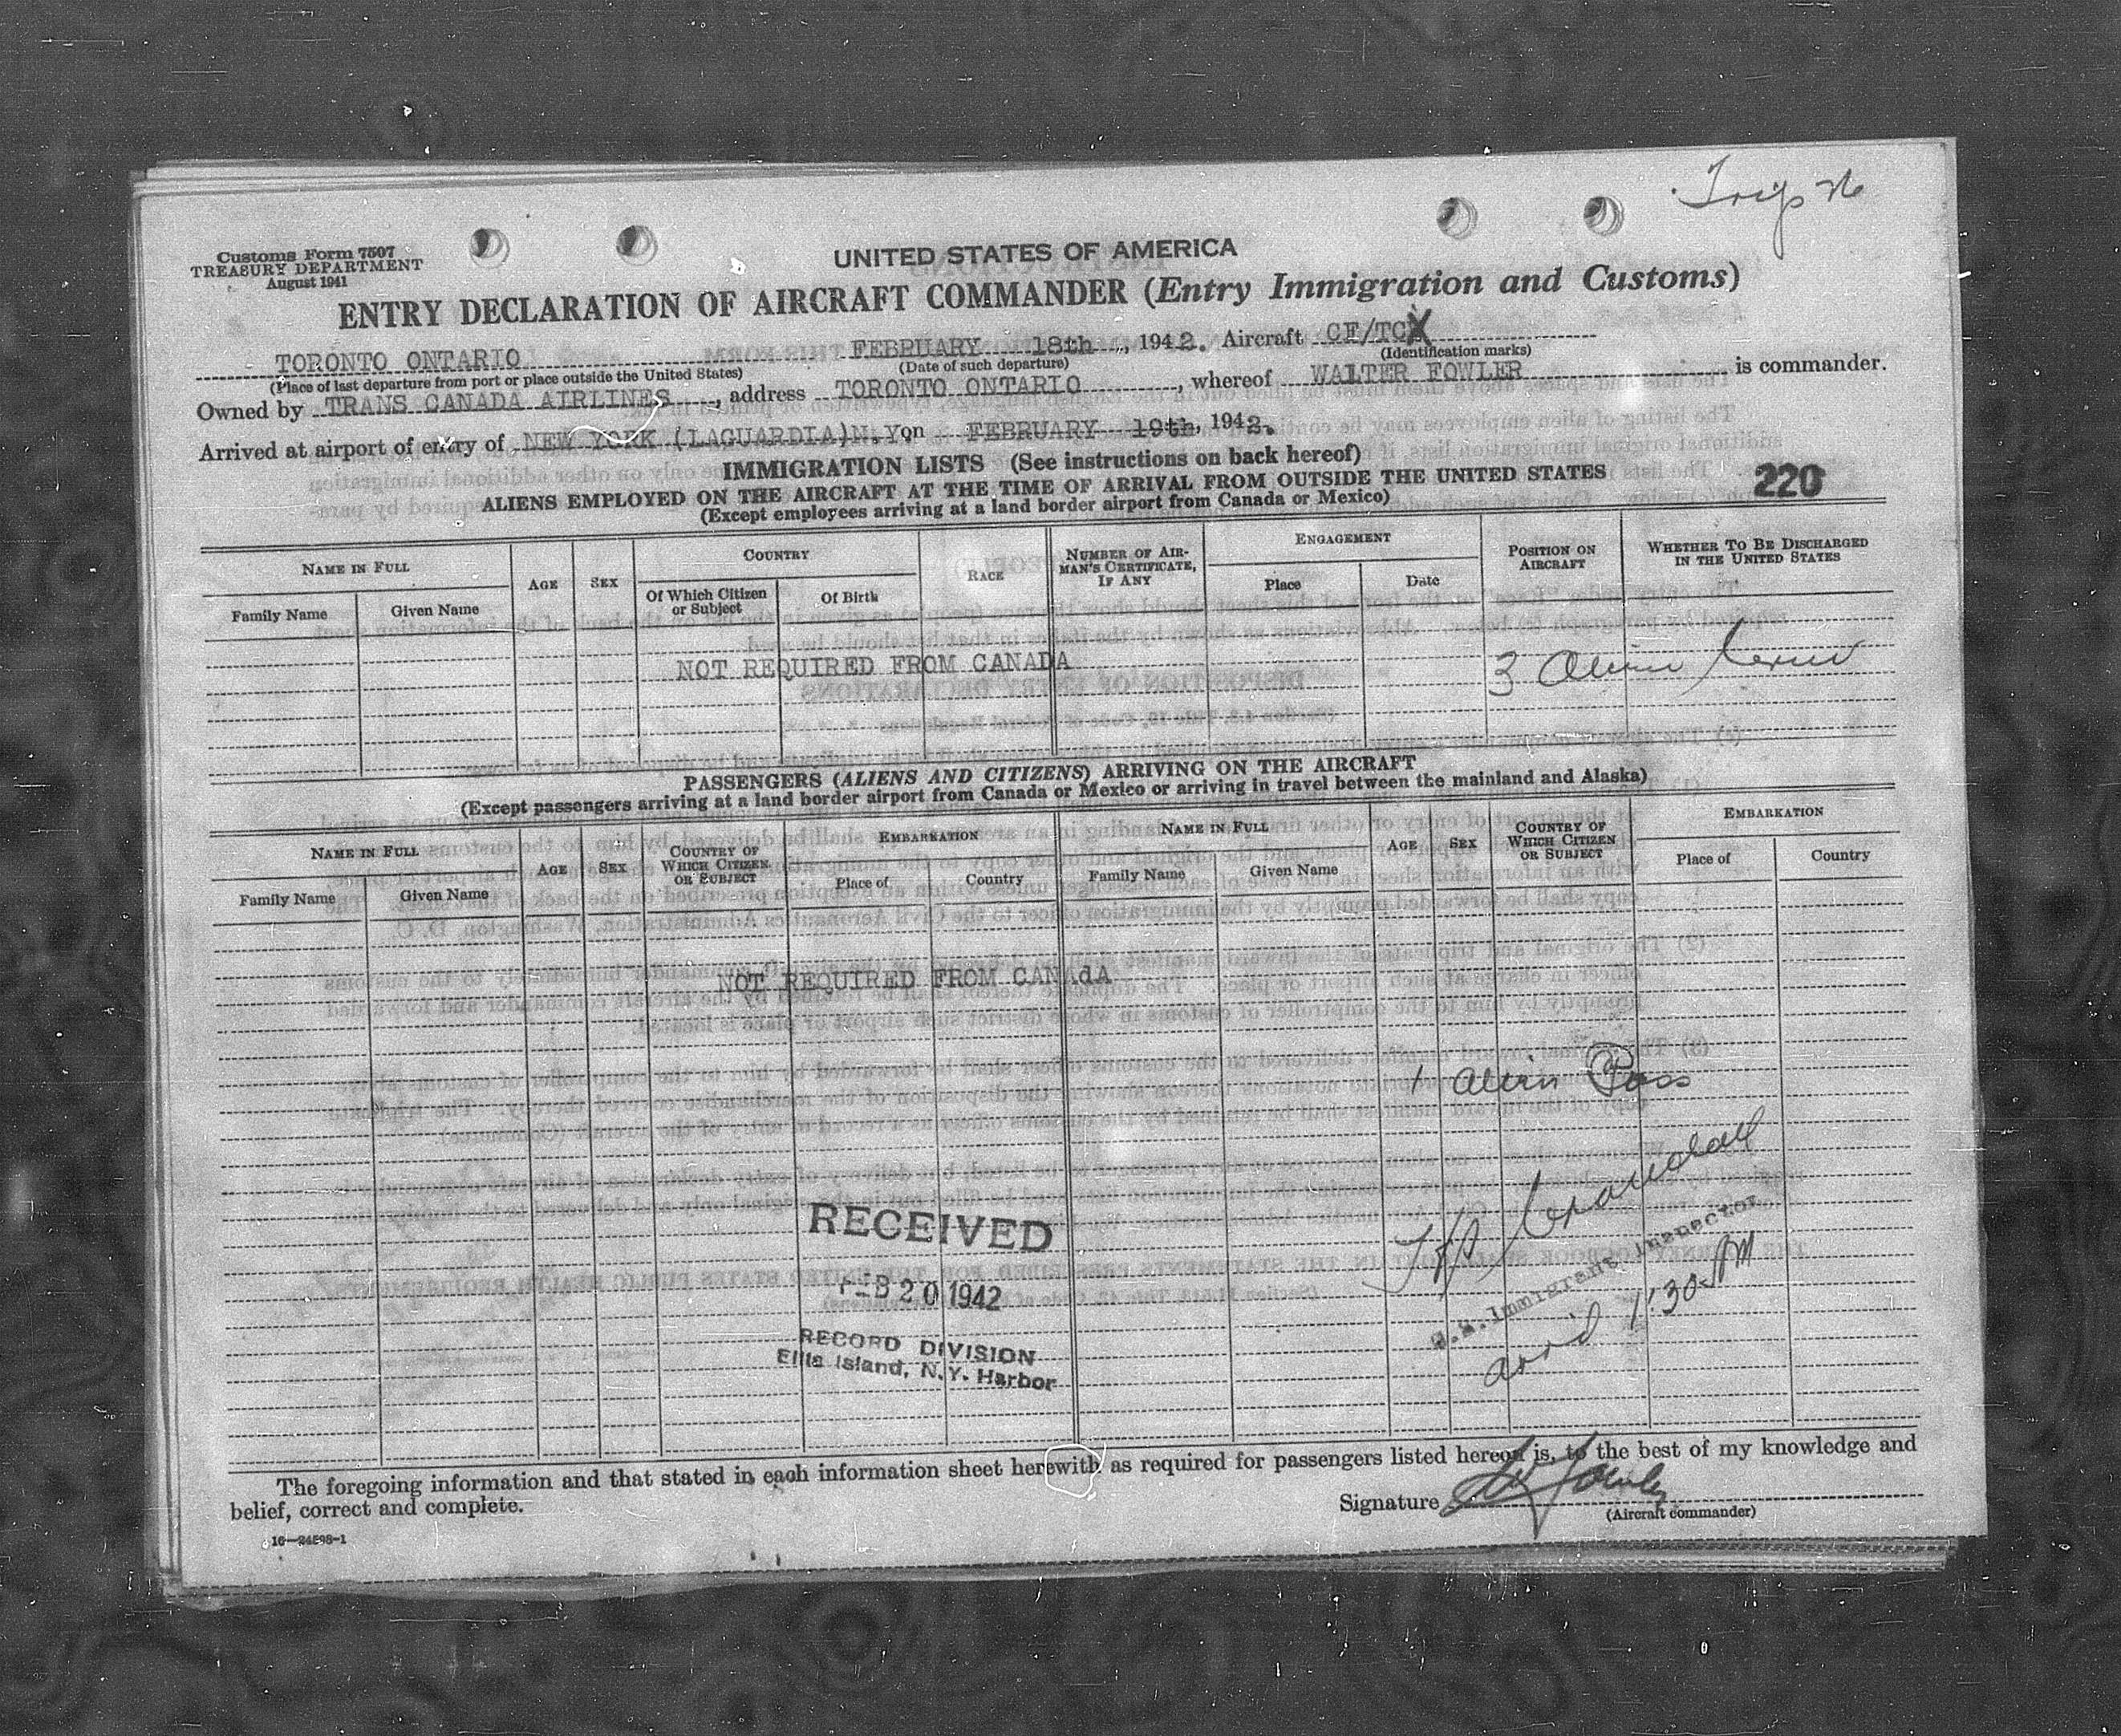 Trip 76
Customs Form 7507
TREASURY DEPARTMENT
August 1941
UNITED STATES OF AMERICA
ENTRY DECLARATION OF AIRCRAFT COMMANDER (Entry Immigration and Customs)
TORONTO ONTARIO FEBRUARY 18th, 1942. Aircraft CF/TCX
(Place of last departure from port or place outside the United States) (Date of such departure) (Identification marks)
Owned by TRANS CANADA AIRLINES, address TORONTO ONTARIO, whereof WALTER FOWLER is commander.
Arrived at airport of entry of NEW YORK (LAGUARDIA)N.Y. on FEBRUARY 19th, 1942.
IMMIGRATION LISTS (See instructions on back hereof)
ALIENS EMPLOYED ON THE AIRCRAFT AT THE TIME OF ARRIVAL FROM OUTSIDE THE UNITED STATES
220
(Except employees arriving at a land border airport from Canada or Mexico)
NAME IN FULL AGE SEX COUNTRY RACE NUMBER OF AIRMAN'S CERTIFICATE, IF ANY ENGAGEMENT POSITION ON AIRCRAFT WHETHER TO BE DISCHARGED IN THE UNITED STATES
Family Name Given Name Of Which Citizen or Subject Of Birth Place Date
NOT REQUIRED FROM CANADA
3 Alien Crew
PASSENGERS (ALIENS AND CITIZENS) ARRIVING ON THE AIRCRAFT
(Except passengers arriving at a land border airport from Canada or Mexico or arriving in travel between the mainland and Alaska)
NAME IN FULL AGE SEX COUNTRY OF WHICH CITIZEN OR SUBJECT EMBARKATION NAME IN FULL AGE SEX COUNTRY OF WHICH CITIZEN OR SUBJECT EMBARKATION
Family Name Given Name Place of Country Family Name Given Name Place of Country
NOT REQUIRED FROM CANAdA
1 Alien Pass
Crandall
U.S. Immigrant Inspector
arr'd 1:30 PM
RECEIVED
FEB 20 1942
RECORD DIVISION
Ellis Island, N.Y. Harbor
The foregoing information and that stated in each information sheet herewith as required for passengers listed hereon is, to the best of my knowledge and
belief, correct and complete.
Signature W Fowler
(Aircraft commander)